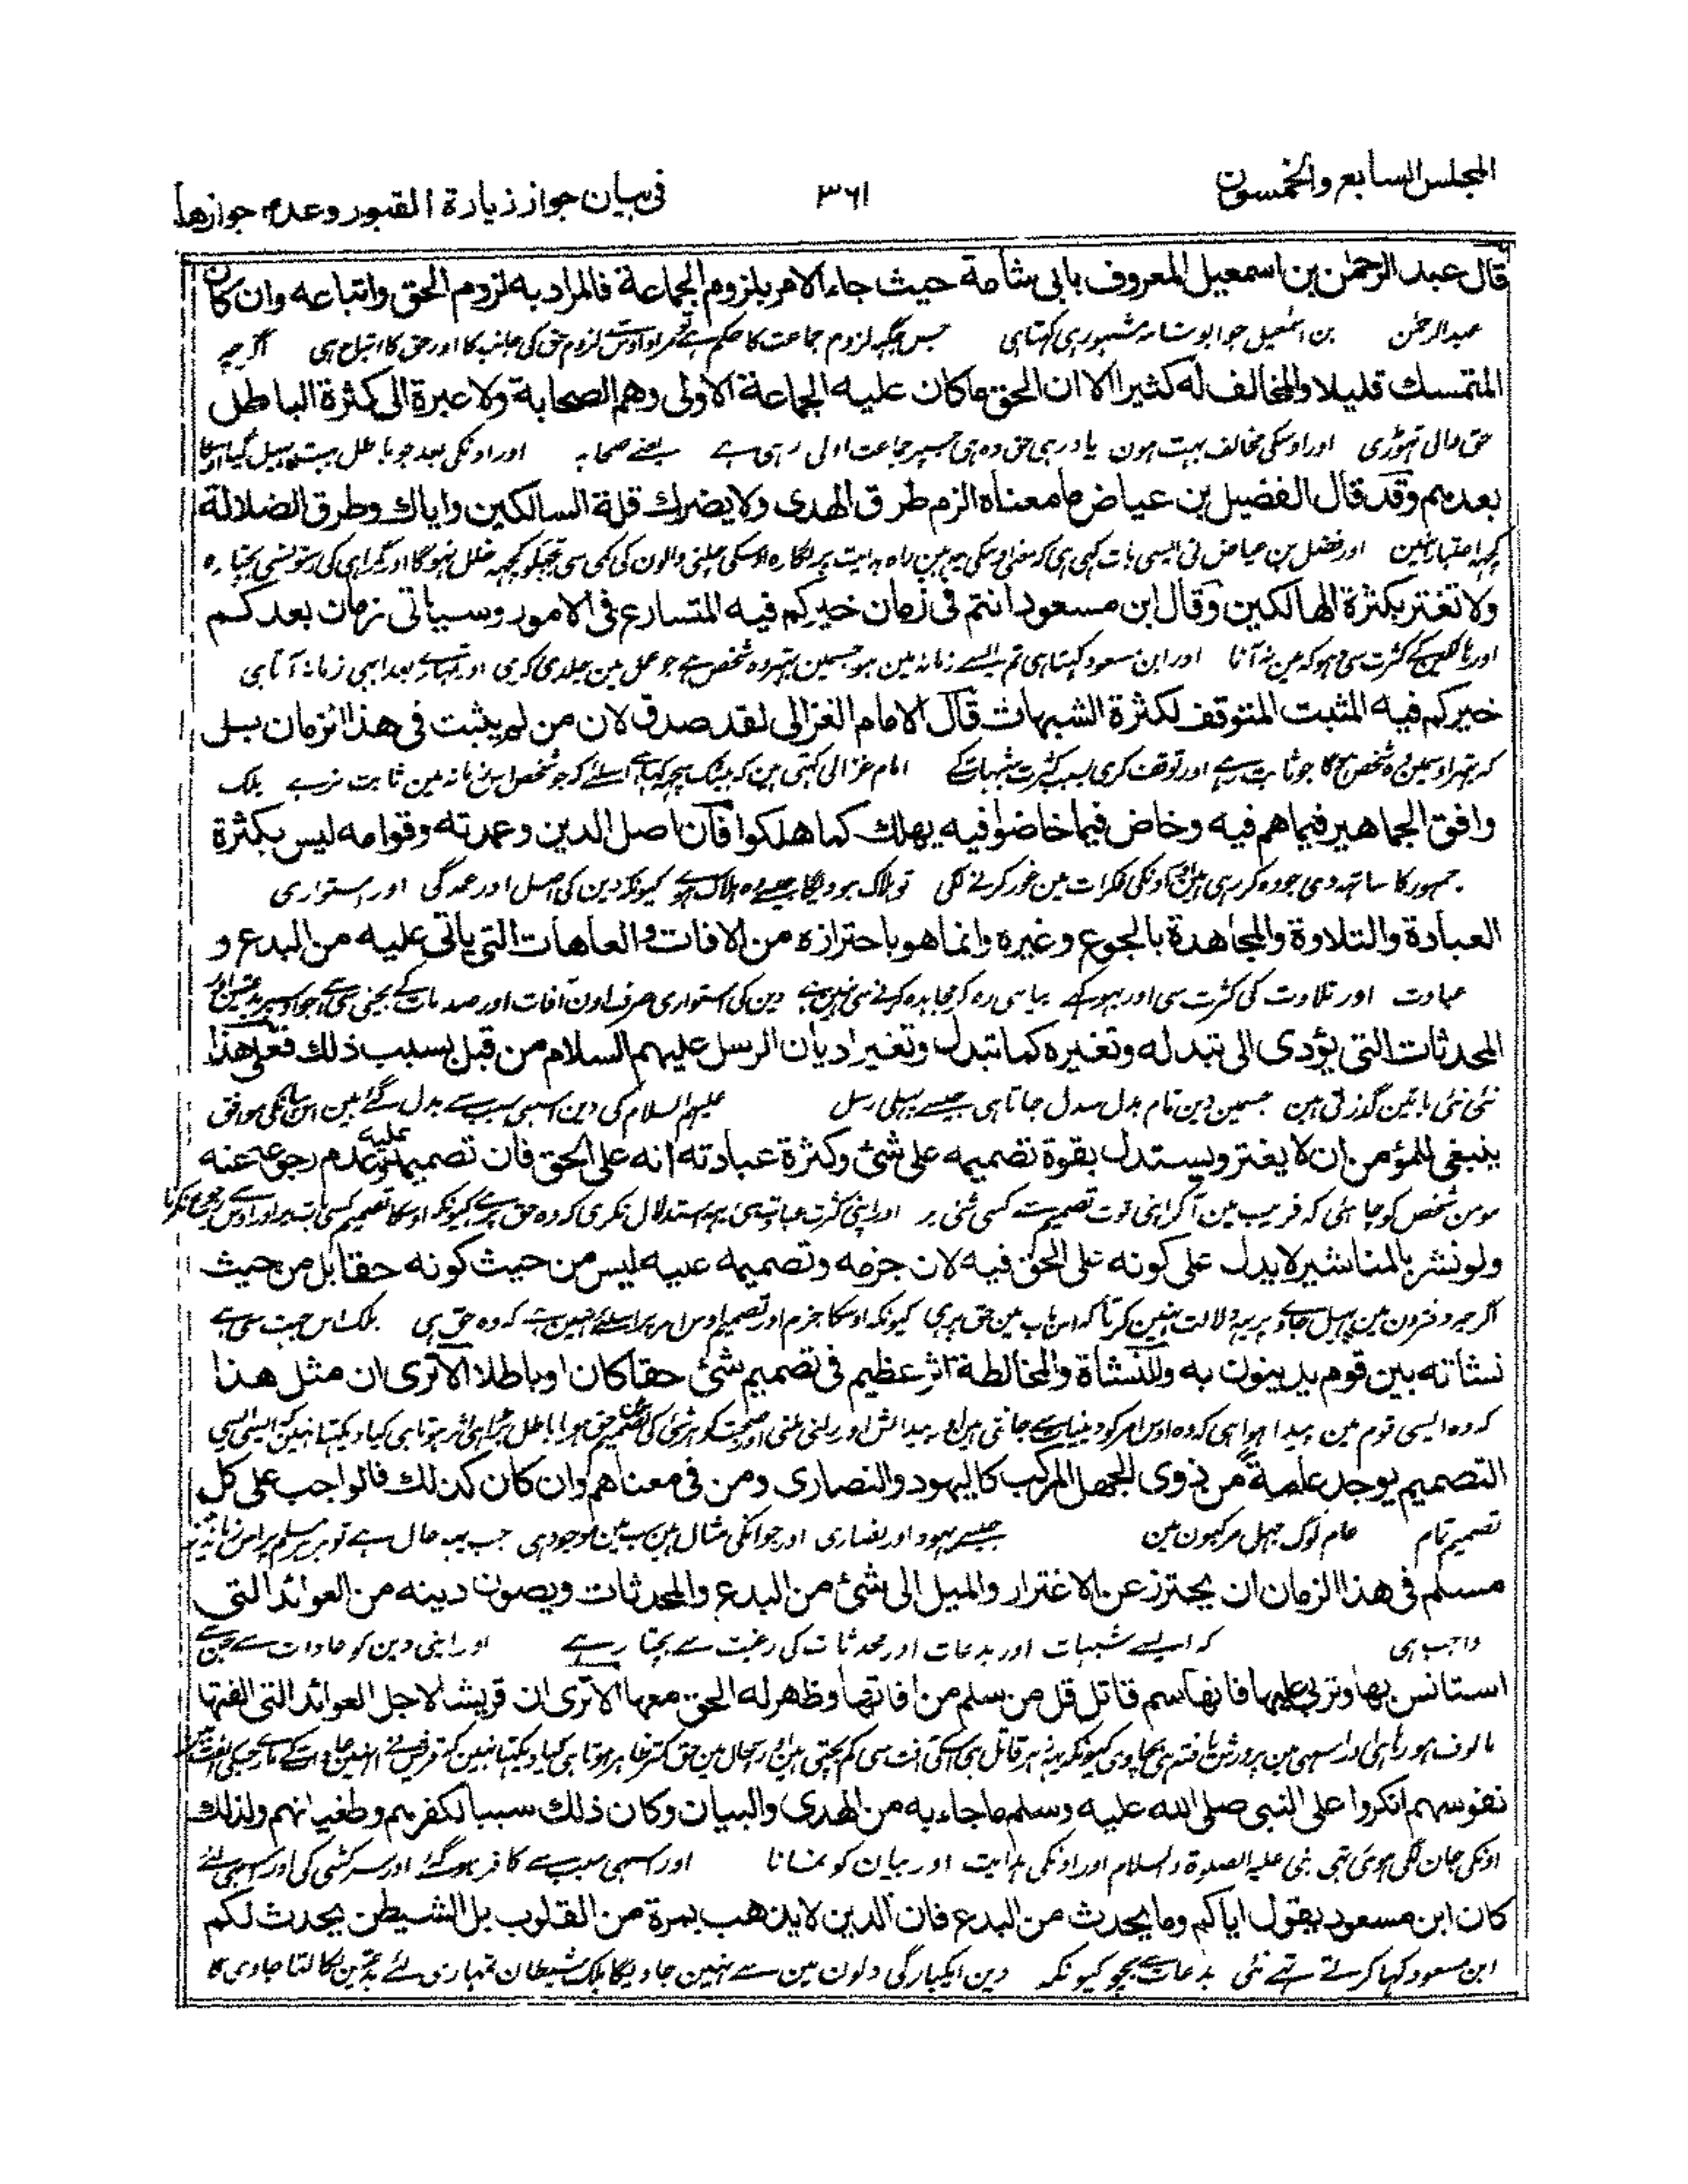 المجلس السابع والخمسون
٣٦١
في بيان جواز زيارة القبور وعدم جوازها
قال عبد الرحمٰن بن اسمعيل المعروف بابى شامة حيث جاء الامر بلزوم الجماعة فالمراد به لزوم الحق واتباعه وان كان
عبد الرحمٰن بن اسمٰعیل جو ابو شامہ مشہور ہی کہتا ہی جس جگہ لزوم جماعت کا حکم ہے تو مراد اوس سے لزوم حق کی جانب کا اور حق کا اتباع ہی اگرچہ
المتمسك قليلا والمخالف له كثيرا الا ان الحق ما كان عليه الجماعة الاولى وهم الصحابة ولا عبرة الى كثرة الباطل
حق والی تہوڑی اور اوسکی مخالف بہت ہون یاد رہی حق وہ ہی جسپر جماعت اولی رہی ہے یعنے صحابہ اور اونکی بعد جو باطل بہت پہیل گیا
بعدهم وقد قال الفضيل بن عياض ما معناه الزم طرق الهدى ولا يضرك قلة السالكين واياك وطرق الضلالة
کچہہ اعتبار نہین اور فضیل بن عیاض نی ایسی بات کہی ہی کہ معنی اوسکی یہ ہین راہ ہدایت پر لگا رہ اوسکی چلنی والون کی کمی سی تجکو کچہہ خلل نہوگا اور گمراہی کی رستونسی بچتا رہ
ولا تغتر بكثرة الهالكين وقال ابن مسعود انتم فى زمان خيركم فيه المتسارع فى الامور وسياتى زمان بعدكم
اور ہالکین کے کثرت سی دہوکہ مین نہ آنا اور ابن مسعود کہتا ہی تم ایسے زمانہ مین ہو جسمین بہتر وہ شخص ہے جو عمل مین جلدی کری اور تمہارے بعد ایسی زمانہ آتا ہی
خيركم فيه المثبت المتوقف لكثرة الشبهات قال الامام الغزالى لقد صدق لان من لم يثبت فى هذا الزمان بل
کہ بہتر اوسمین وہ شخص ہوگا جو ثابت رہے اور توقف کری بسبب کثرت شبہات کے امام غزالی کہتی ہین کہ بیشک سچ کہا ہے اسلئے کہ جو شخص اس زمانہ مین ثابت نرہے بلکہ
وافق الجماهير فيما هم فيه وخاض فيما خاضوا فيه يهلك كما هلكوا فان اصل الدين وعمدته وقوامه ليس بكثرة
جمہور کا ساتہہ دی جو وہ کر رہی ہین اور اونکی فکرات مین غور کرنے لگی تو ہلاک ہو ویگا جیسے وہ ہلاک ہوئے کیونکہ دین کی اصل اور عمدگی اور استواری
العبادة والتلاوة والمجاهدة بالجوع وغيره وانما هو باحترازه من الافات والعاهات التى ياتى عليه من البدع و
عبادت اور تلاوت کی کثرت سی اور بہوکے پیاسی رہ کر مجاہدہ کرنے سی نہین ہے دین کی استواری صرف اون آفات اور صدمات کے بچنی سی ہے جو اوسپر
المحدثات التى يؤدى الى تبدله وتغيره كما تبدل وتغير اديان الرسل عليهم السلام من قبل بسبب ذلك فعلى هذا
نئی نئی باتین گذرتی ہین جسمین دین تمام بدل سدل جاتا ہی جیسے پہلی رسل علیہم السلام کی دین اسیی سبب سے بدل گئے ہین اس کی موافق
ينبغى للمؤمن ان لا يغتر ويستدل بقوة تصميمه على شئ وكثرة عبادته انه على الحق فان تصميمه عليه وعدم رجوعه عنه
مومن شخص کو چاہئی کہ فریب مین آکر اپنی قوت تصمیم سے کسی شئی پر اور اپنی کثرت عبادت سی یہ استدلال نکری کہ وہ حق پر ہے کیونکہ اوسکا تصمیم کسی بات پر اور اوس سے رجوع نکرنا
ولو نشر بالمناشير لا يدل على كونه على الحق فيه لان جزمه وتصميمه عليه ليس من حيث كونه حقا بل من حيث
اگرچہ دفترون مین پہیل جاوے پر یہہ دلالت نہین کرتا کہ اس باب مین حق پر ہی کیونکہ اوسکا جزم اور تصمیم اوس امر پر اسلئے نہین ہے کہ وہ حق ہی بلکہ اس جہت سی ہے
نشاته بين قوم يدينون به وللنشاة والمخالطة اثر عظيم فى تصميم شئ حقا كان او باطلا الا ترى ان مثل هذا
کہ وہ ایسی قوم مین پیدا ہوا ہی کہ وہ اوس امر کو دین جانتی ہین پیدائش اور صحبت کو ہر شئ کی تصمیم حق ہو یا باطل بڑا ہی اثر ہوتا ہی کیا دیکہتا نہین کہ ایسی ہی
التصميم يوجد عامة من ذوى الجهل المركب كاليهود والنصارى ومن فى معناهم وان كان كذلك فالواجب على كل
تصمیم تام عام لوگ جہل مرکبون مین جیسے یہود اور نصاری اور جو انکی مثال ہین سب مین موجود ہی جب یہہ حال ہے تو ہر مسلم پر اس زمانہ مین
مسلم فى هذا الزمان ان يحترز عن الاغترار والميل الى شئ من البدع والمحدثات ويصون دينه من العوائد التى
واجب ہی کہ ایسے شبہات اور بدعات اور محدثات کی رغبت سے بچتا رہے اور اپنی دین کو عادات سے جن سے
استانس بها وتربى عليها فانها سم قاتل قل من سلم من افاتها وظهر له الحق معها الا ترى ان قريشا لاجل العوائد التى الفتها
مالوف ہو رہا ہی اور اسیہی مین پرورش یافتہ ہی بچاوی کیونکہ یہہ زہر قاتل ہی اسکی آفت سی کم بچتی ہین اور اس حال مین حق کمتر ظاہر ہوتا ہی کیا دیکہتا نہین کہ قریش نے انہین عادات کے مارے
نفوسهم انكروا على النبى صلى الله عليه وسلم ما جاء به من الهدى والبيان وكان ذلك سببا لكفرهم وطغيانهم ولذلك
اونکی جان لگی ہوئی تہی نبی علیہ الصلوة والسلام اور اونکی ہدایت اور بیان کو نمانا اور اسیہی سبب سے کافر ہو گئے اور سرکشی کی اور اسیہی لئے
كان ابن مسعود يقول اياكم وما يحدث من البدع فان الدين لا يذهب بمرة من القلوب بل الشيطن يحدث لكم
ابن مسعود کہا کرتے تہے نئی بدعات سے بچو کیونکہ دین ایکبارگی دلون مین سے نہین جاویگا بلکہ شیطان تمہاری لئے بدعتین نکالتا جاویگا